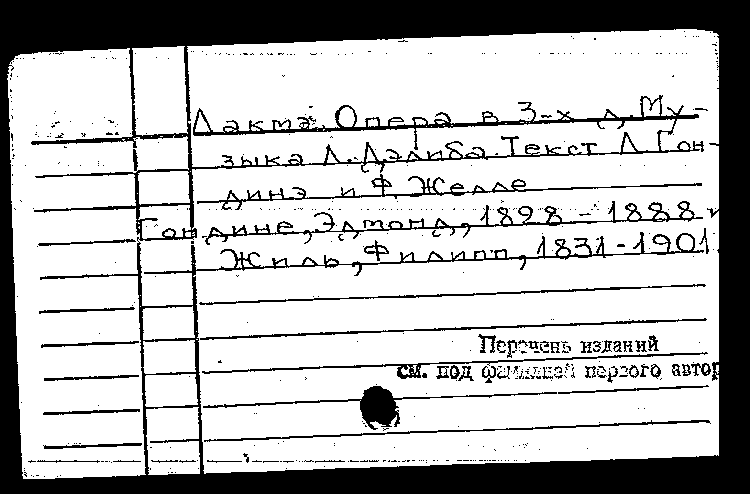 Лакмэ. Опера в 3-х д. Му-
зыка Л. Дэлиба. Текст Л. Гон-
динэ и Ф. Желле
Гондине, Эдмонд, 1828-1888 и
Жиль, Филипп, 1831-1901.
Перечень изданий
см. под фамилией первого автор